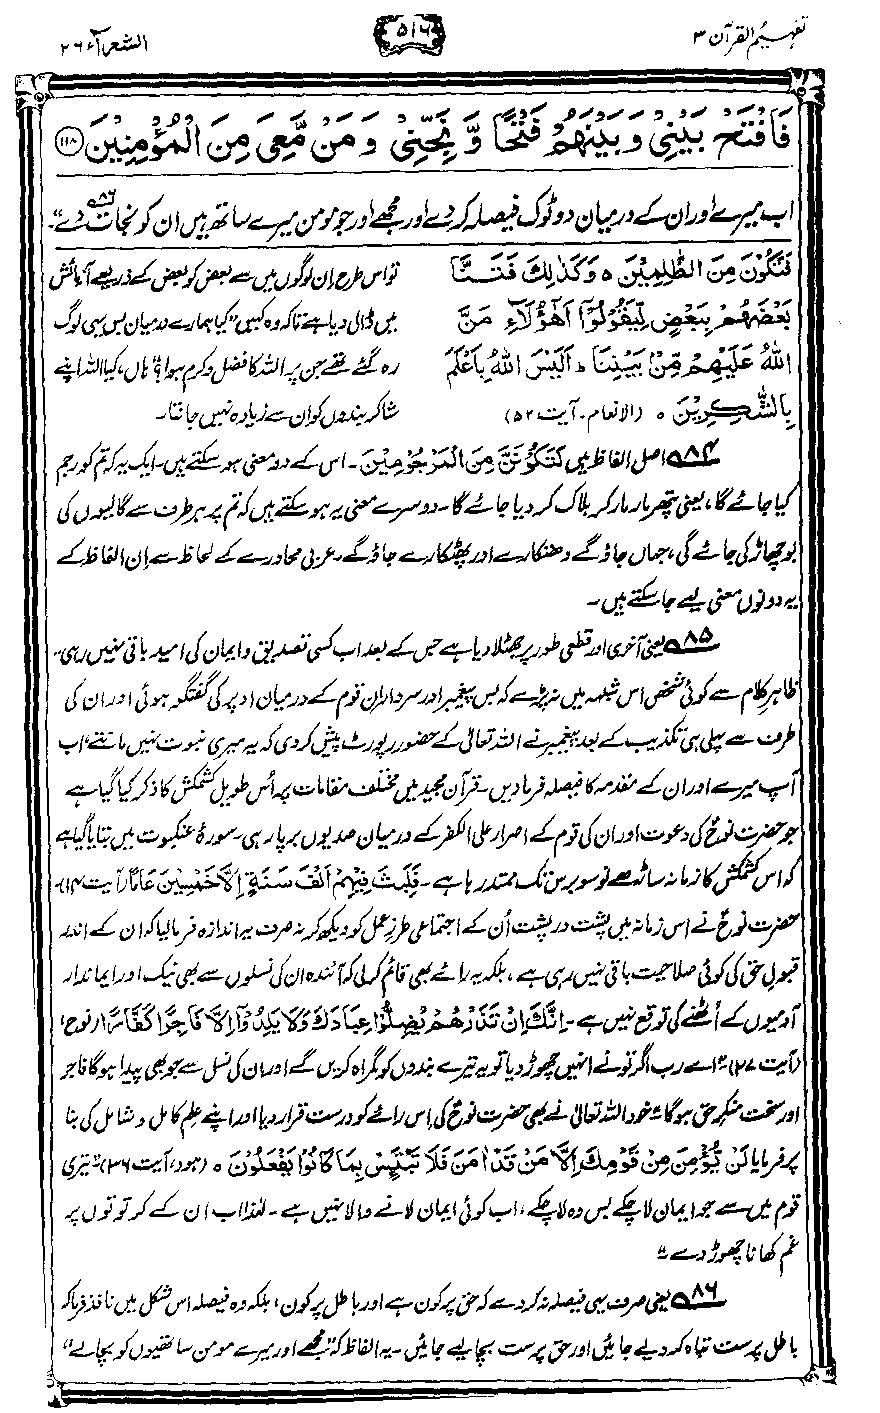 تفہیم القرآن ۳
۵۱۶
الشعرآء ۲۶
فَافْتَحْ بَيْنِيْ وَ بَيْنَهُمْ فَتْحًا وَّ نَجِّنِيْ وَ مَنْ مَّعِيَ مِنَ الْمُؤْمِنِيْنَ ۝۱۱۸
اب میرے اور ان کے درمیان دو ٹوک فیصلہ کر دے اور مجھے اور جو مومن میرے ساتھ ہیں ان کو نجات دے“۔ ۸۶
فَتَكُوْنَ مِنَ الظّٰلِمِيْنَ ٥ وَكَذٰلِكَ فَتَنَّا
بَعْضَهُمْ بِبَعْضٍ لِّيَقُوْلُوْٓا اَهٰٓؤُلَآءِ مَنَّ
اللّٰهُ عَلَيْهِمْ مِّنْۢ بَيْنِنَا ؕ اَلَيْسَ اللّٰهُ بِاَعْلَمَ
بِالشّٰكِرِيْنَ ٥ (الانعام۔ آیت ۵۲)
تو اس طرح اِن لوگوں میں سے بعض کو بعض کے ذریعے آزمائش
میں ڈال دیا ہے تاکہ وہ کہیں ”کیا ہمارے درمیان بس یہی لوگ
رہ گئے تھے جن پر اللہ کا فضل و کرم ہوا؟“ ہاں، کیا اللہ اپنے
شاکر بندوں کو ان سے زیادہ نہیں جانتا۔
۸۴ اصل الفاظ ہیں لَتَكُوْنَنَّ مِنَ الْمَرْجُوْمِيْنَ۔ اس کے دو معنی ہو سکتے ہیں۔ ایک یہ کہ تم کو رجم
کیا جائے گا، یعنی پتھر مار مار کر ہلاک کر دیا جائے گا۔ دوسرے معنی یہ ہو سکتے ہیں کہ تم پر ہر طرف سے گالیوں کی
بوچھاڑ کی جائے گی، جہاں جاؤ گے دھتکارے اور پھٹکارے جاؤ گے۔ عربی محاورے کے لحاظ سے اِن الفاظ کے
یہ دونوں معنی لیے جا سکتے ہیں۔
۸۵ یعنی آخری اور قطعی طور پر جھٹلا دیا ہے جس کے بعد اب کسی تصدیق و ایمان کی امید باقی نہیں رہی۔
ظاہرِ کلام سے کوئی شخص اس شبہہ میں نہ پڑے کہ بس پیغمبر اور سردارانِ قوم کے درمیان اوپر کی گفتگو ہوئی اور ان کی
طرف سے پہلی ہی تکذیب کے بعد پیغمبر نے اللہ تعالیٰ کے حضور رپورٹ پیش کر دی کہ یہ میری نبوت نہیں مانتے، اب
آپ میرے اور ان کے مقدمہ کا فیصلہ فرما دیں۔ قرآن مجید میں مختلف مقامات پر اُس طویل کشمکش کا ذکر کیا گیا ہے
جو حضرت نوحؑ کی دعوت اور ان کی قوم کے اصرار علی الکفر کے درمیان صدیوں برپا رہی۔ سورۂ عنکبوت میں بتایا گیا ہے
کہ اس کشمکش کا زمانہ ساڑھے نو سو برس تک ممتد رہا ہے۔ فَلَبِثَ فِيْهِمْ اَلْفَ سَنَةٍ اِلَّا خَمْسِيْنَ عَامًا (آیت ۱۴)۔
حضرت نوحؑ نے اس زمانہ میں پشت در پشت اُن کے اجتماعی طرزِ عمل کو دیکھ کر نہ صرف یہ اندازہ فرما لیا کہ ان کے اندر
قبولِ حق کی کوئی صلاحیت باقی نہیں رہی ہے، بلکہ یہ رائے بھی قائم کر لی کہ آئندہ ان کی نسلوں سے بھی نیک اور ایماندار
آدمیوں کے اُٹھنے کی توقع نہیں ہے۔ اِنَّكَ اِنْ تَذَرْهُمْ يُضِلُّوْا عِبَادَكَ وَلَا يَلِدُوْٓا اِلَّا فَاجِرًا كَفَّارًا (نوح،
(آیت ۲۷) ”اے رب اگر تو نے انہیں چھوڑ دیا تو یہ تیرے بندوں کو گمراہ کریں گے اور ان کی نسل سے جو بھی پیدا ہوگا فاجر
اور سخت منکرِ حق ہوگا“۔ خود اللہ تعالیٰ نے بھی حضرت نوحؑ کی اِس رائے کو درست قرار دیا اور اپنے علم کامل و شامل کی بنا
پر فرمایا لَنْ يُّؤْمِنَ مِنْ قَوْمِكَ اِلَّا مَنْ قَدْ اٰمَنَ فَلَا تَبْتَئِسْ بِمَا كَانُوْا يَفْعَلُوْنَ ٥ (ہود، آیت ۳۶)۔ ”تیری
قوم میں سے جو ایمان لا چکے بس وہ لا چکے، اب کوئی ایمان لانے والا نہیں ہے۔ لہٰذا اب ان کے کرتوتوں پر
غم کھانا چھوڑ دے“۔
۸۶ یعنی صرف یہی فیصلہ نہ کر دے کہ حق پر کون ہے اور باطل پر کون، بلکہ وہ فیصلہ اس شکل میں نافذ فرما کہ
باطل پرست تباہ کر دیے جائیں اور حق پرست بچا لیے جائیں۔ یہ الفاظ کہ ”مجھے اور میرے مومن ساتھیوں کو بچا لے“